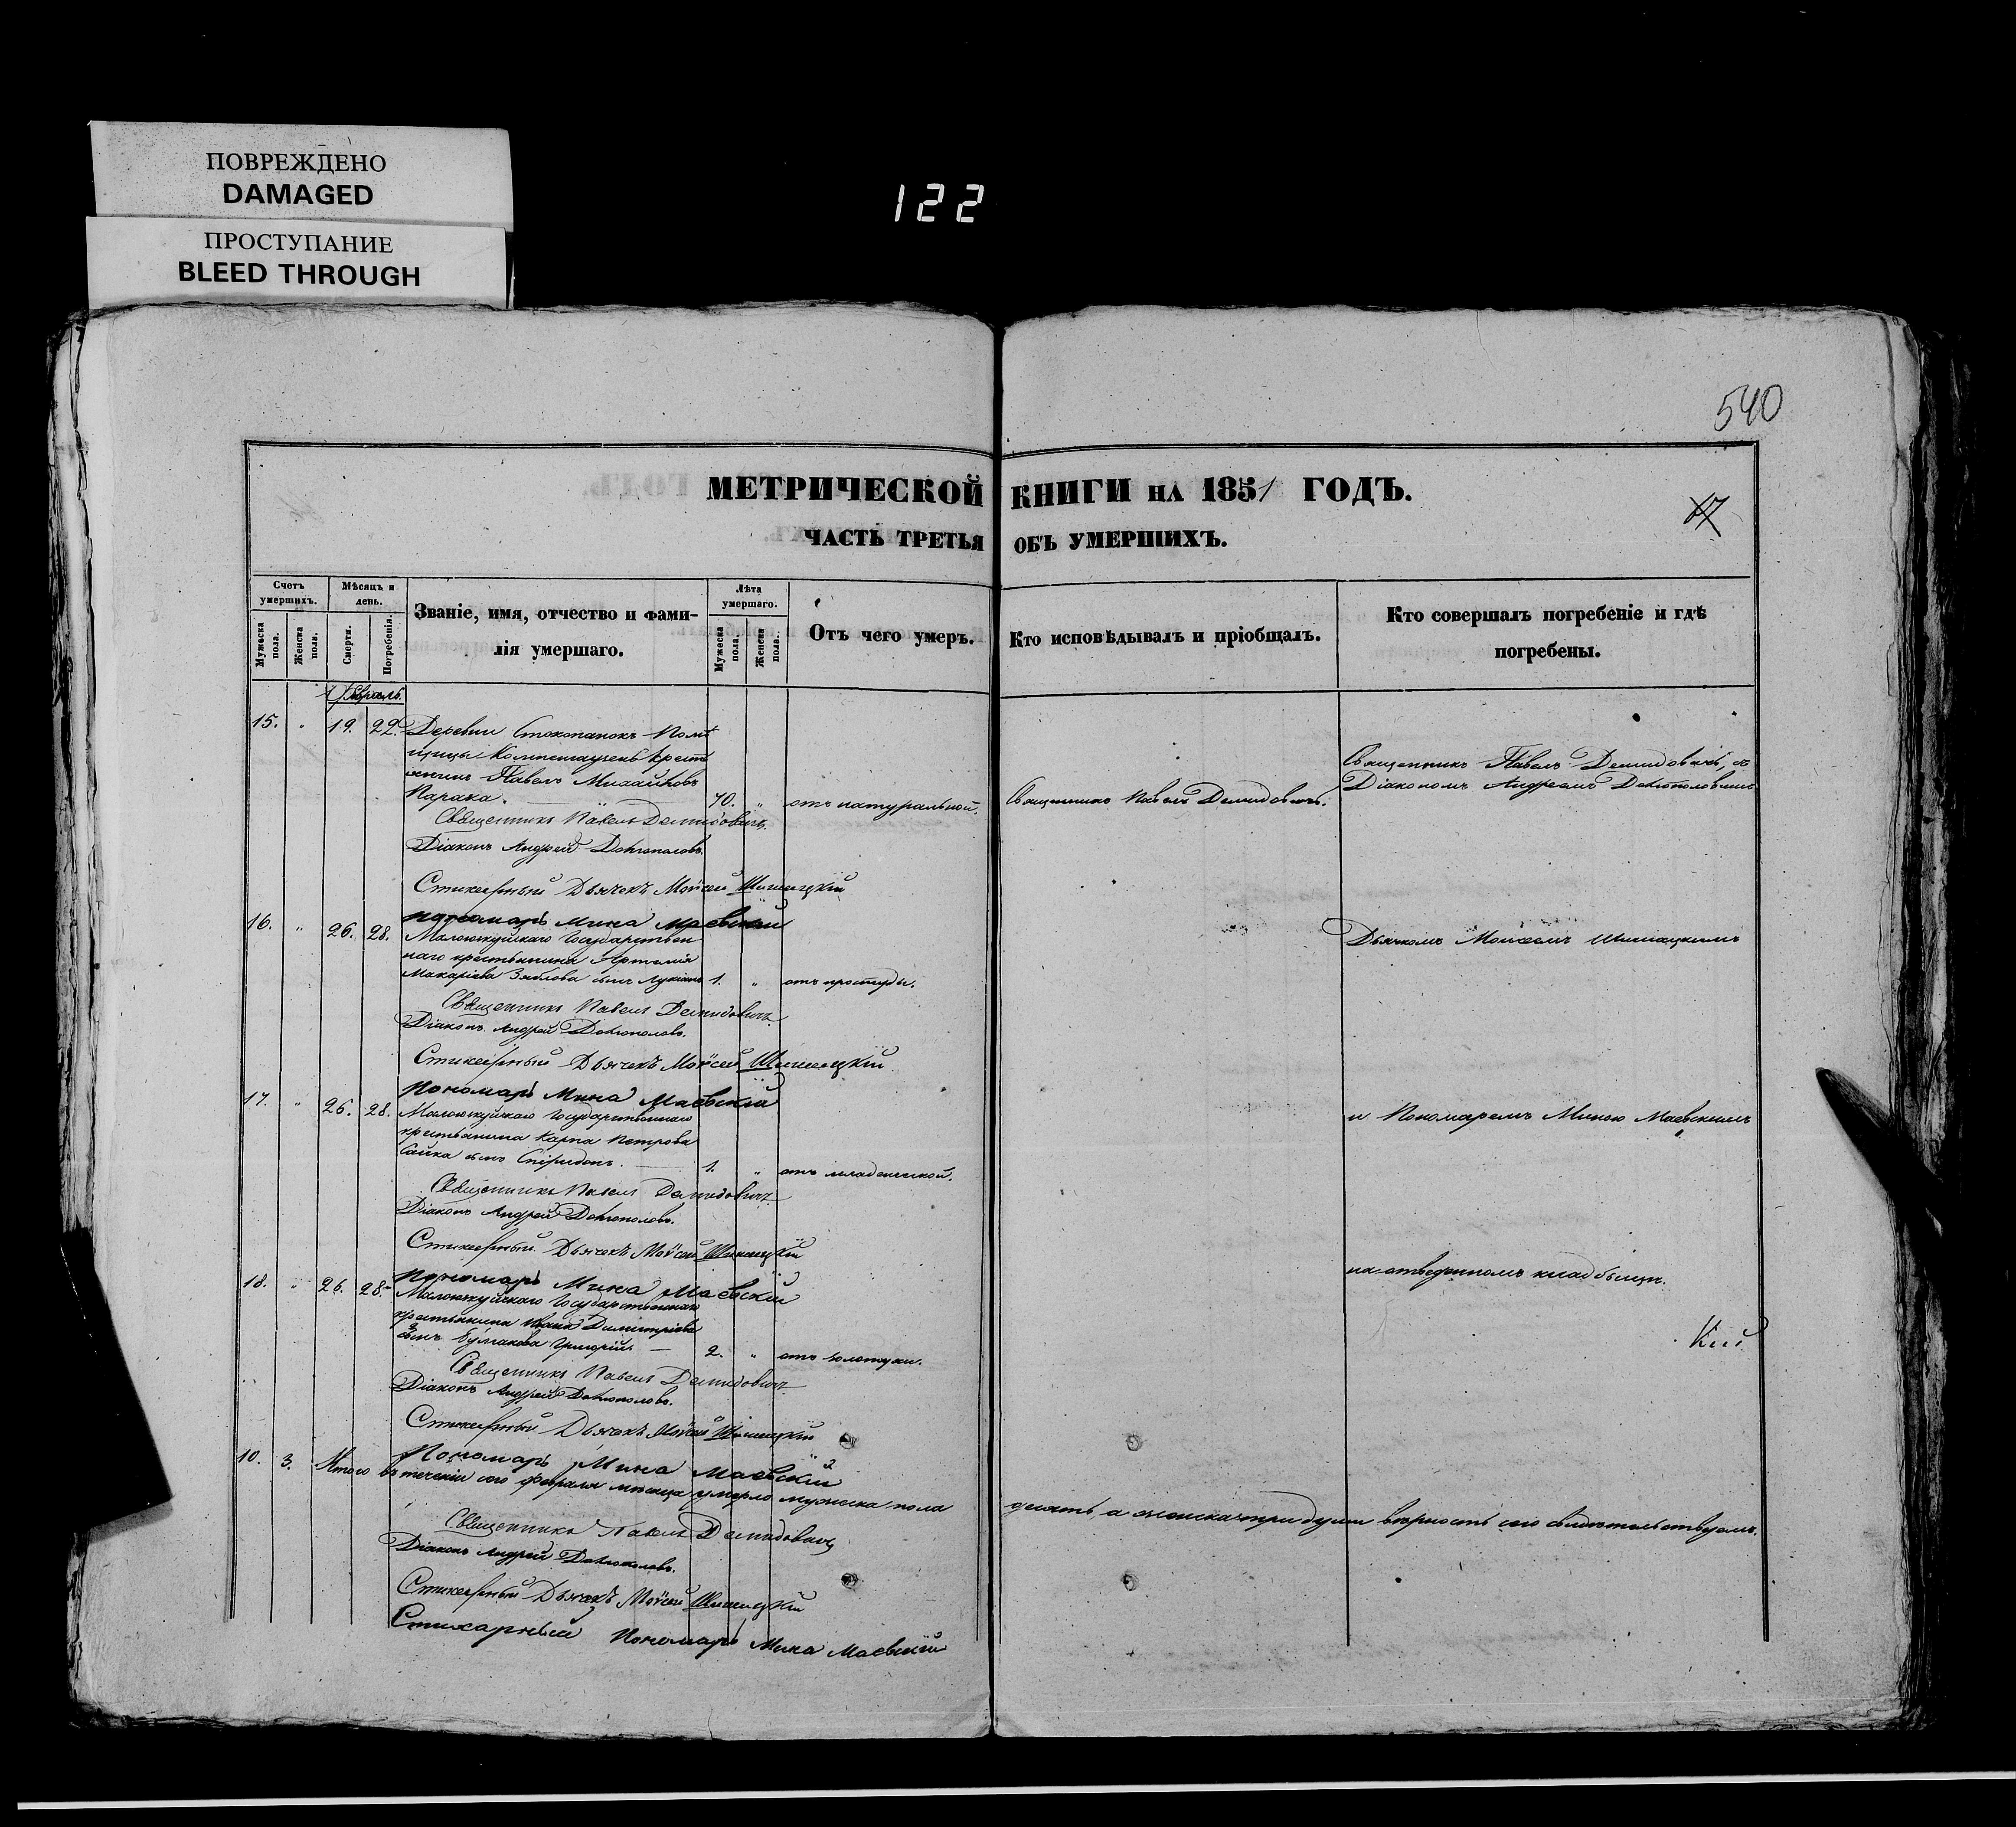 ПОВРЕЖДЕНО
DAMAGED
ПРОСТУПАНИЕ
BLEED THROUGH
122
540
МЕТРИЧЕСКОЙ КНИГИ НА 1851 ГОДЪ.
17
ЧАСТЬ ТРЕТЬЯ ОБЪ УМЕРШИХЪ.
Счетъ умершихъ.
Мужеска пола.
Женска пола.
Мѣсяцъ и день.
Смерти.
Погребенія.
Званіе, имя, отчество и фами-
лія умершаго.
Лѣта умершаго.
Мужеска пола.
Женска пола.
Отъ чего умеръ.
Кто исповѣдывалъ и пріобщалъ.
Кто совершалъ погребеніе и гдѣ
погребены.
Февраль.
15. " 19. 22. Деревни Стокопанокъ Помѣ
щицы крестя
нинъ Павелъ Михайловъ
Парака. 70. " отъ натуральной. Священникъ Павелъ Демидовичъ.
Священникъ Павелъ Демидовичъ, съ
Діакономъ Андреемъ Довгополовымъ
Священникъ Павелъ Демидовичъ.
Діаконъ Андрей Довгополовъ.
Стихарный Дьячекъ Мойсей Шишацкій
Пономарь Мина Маевскій
16. " 26. 28. Государствен
наго крестьянина Артемія
Макаріева Зяблова сынъ Лукіанъ 1. " отъ простуды.
Дьячкомъ Моисеемъ Шишацкимъ
Священникъ Павелъ Демидовичъ
Діаконъ Андрей Довгополовъ.
Стихарный Дьячекъ Мойсей Шишацкій
Пономарь Мина Маевскій
17. " 26. 28. Государственнаго
крестьянина Карпа Петрова
Сайка сынъ Спѵридонъ. 1. " отъ младенческой.
и Пономаремъ Миною Маевскимъ
Священникъ Павелъ Демидовичъ
Діаконъ Андрей Довгополовъ.
Стихарный Дьячекъ Мойсей Шишацкій
Пономарь Мина Маевскій
18. " 26. 28. Государственнаго
крестьянина Ивана Димитріева
сынъ Григорій. 2. " отъ золотухи.
на отведенномъ кладбищи.
Священникъ Павелъ Демидовичъ
Діаконъ Андрей Довгополовъ.
Стихарный Дьячекъ Мойсей Шишацкій
Пономарь Мина Маевскій
10. 3. Итого въ теченіи сего Февраля мѣсяца умерло мужеска пола десять а женска три души вѣрность сего свидѣтельствуемъ.
Священникъ Павелъ Демидовичъ
Діаконъ Андрей Довгополовъ.
Стихарный Дьячекъ Мойсей Шишацкій
Стихарный Пономарь Мина Маевскій